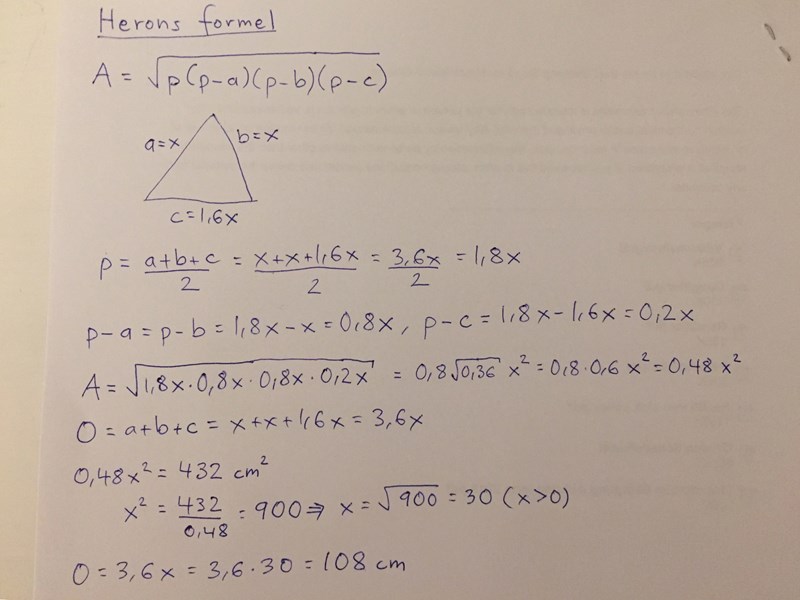 Herons formel
A = √p(p-a)(p-b)(p-c)
a=x b=x
c=1,6x
p = a+b+c/2 = x+x+1,6x/2 = 3,6x/2 = 1,8x
p-a = p-b = 1,8x-x = 0,8x, p-c = 1,8x-1,6x = 0,2x
A = √1,8x·0,8x·0,8x·0,2x = 0,8√0,36 x² = 0,8·0,6 x² = 0,48 x²
O = a+b+c = x+x+1,6x = 3,6x
0,48x² = 432 cm²
x² = 432/0,48 = 900 ⇒ x = √900 = 30 (x>0)
O = 3,6x = 3,6·30 = 108 cm